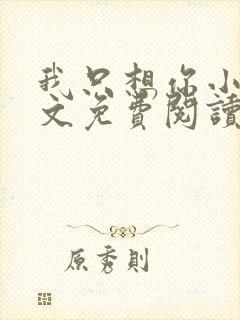 我只想你小
文免費閱讀
原秀則